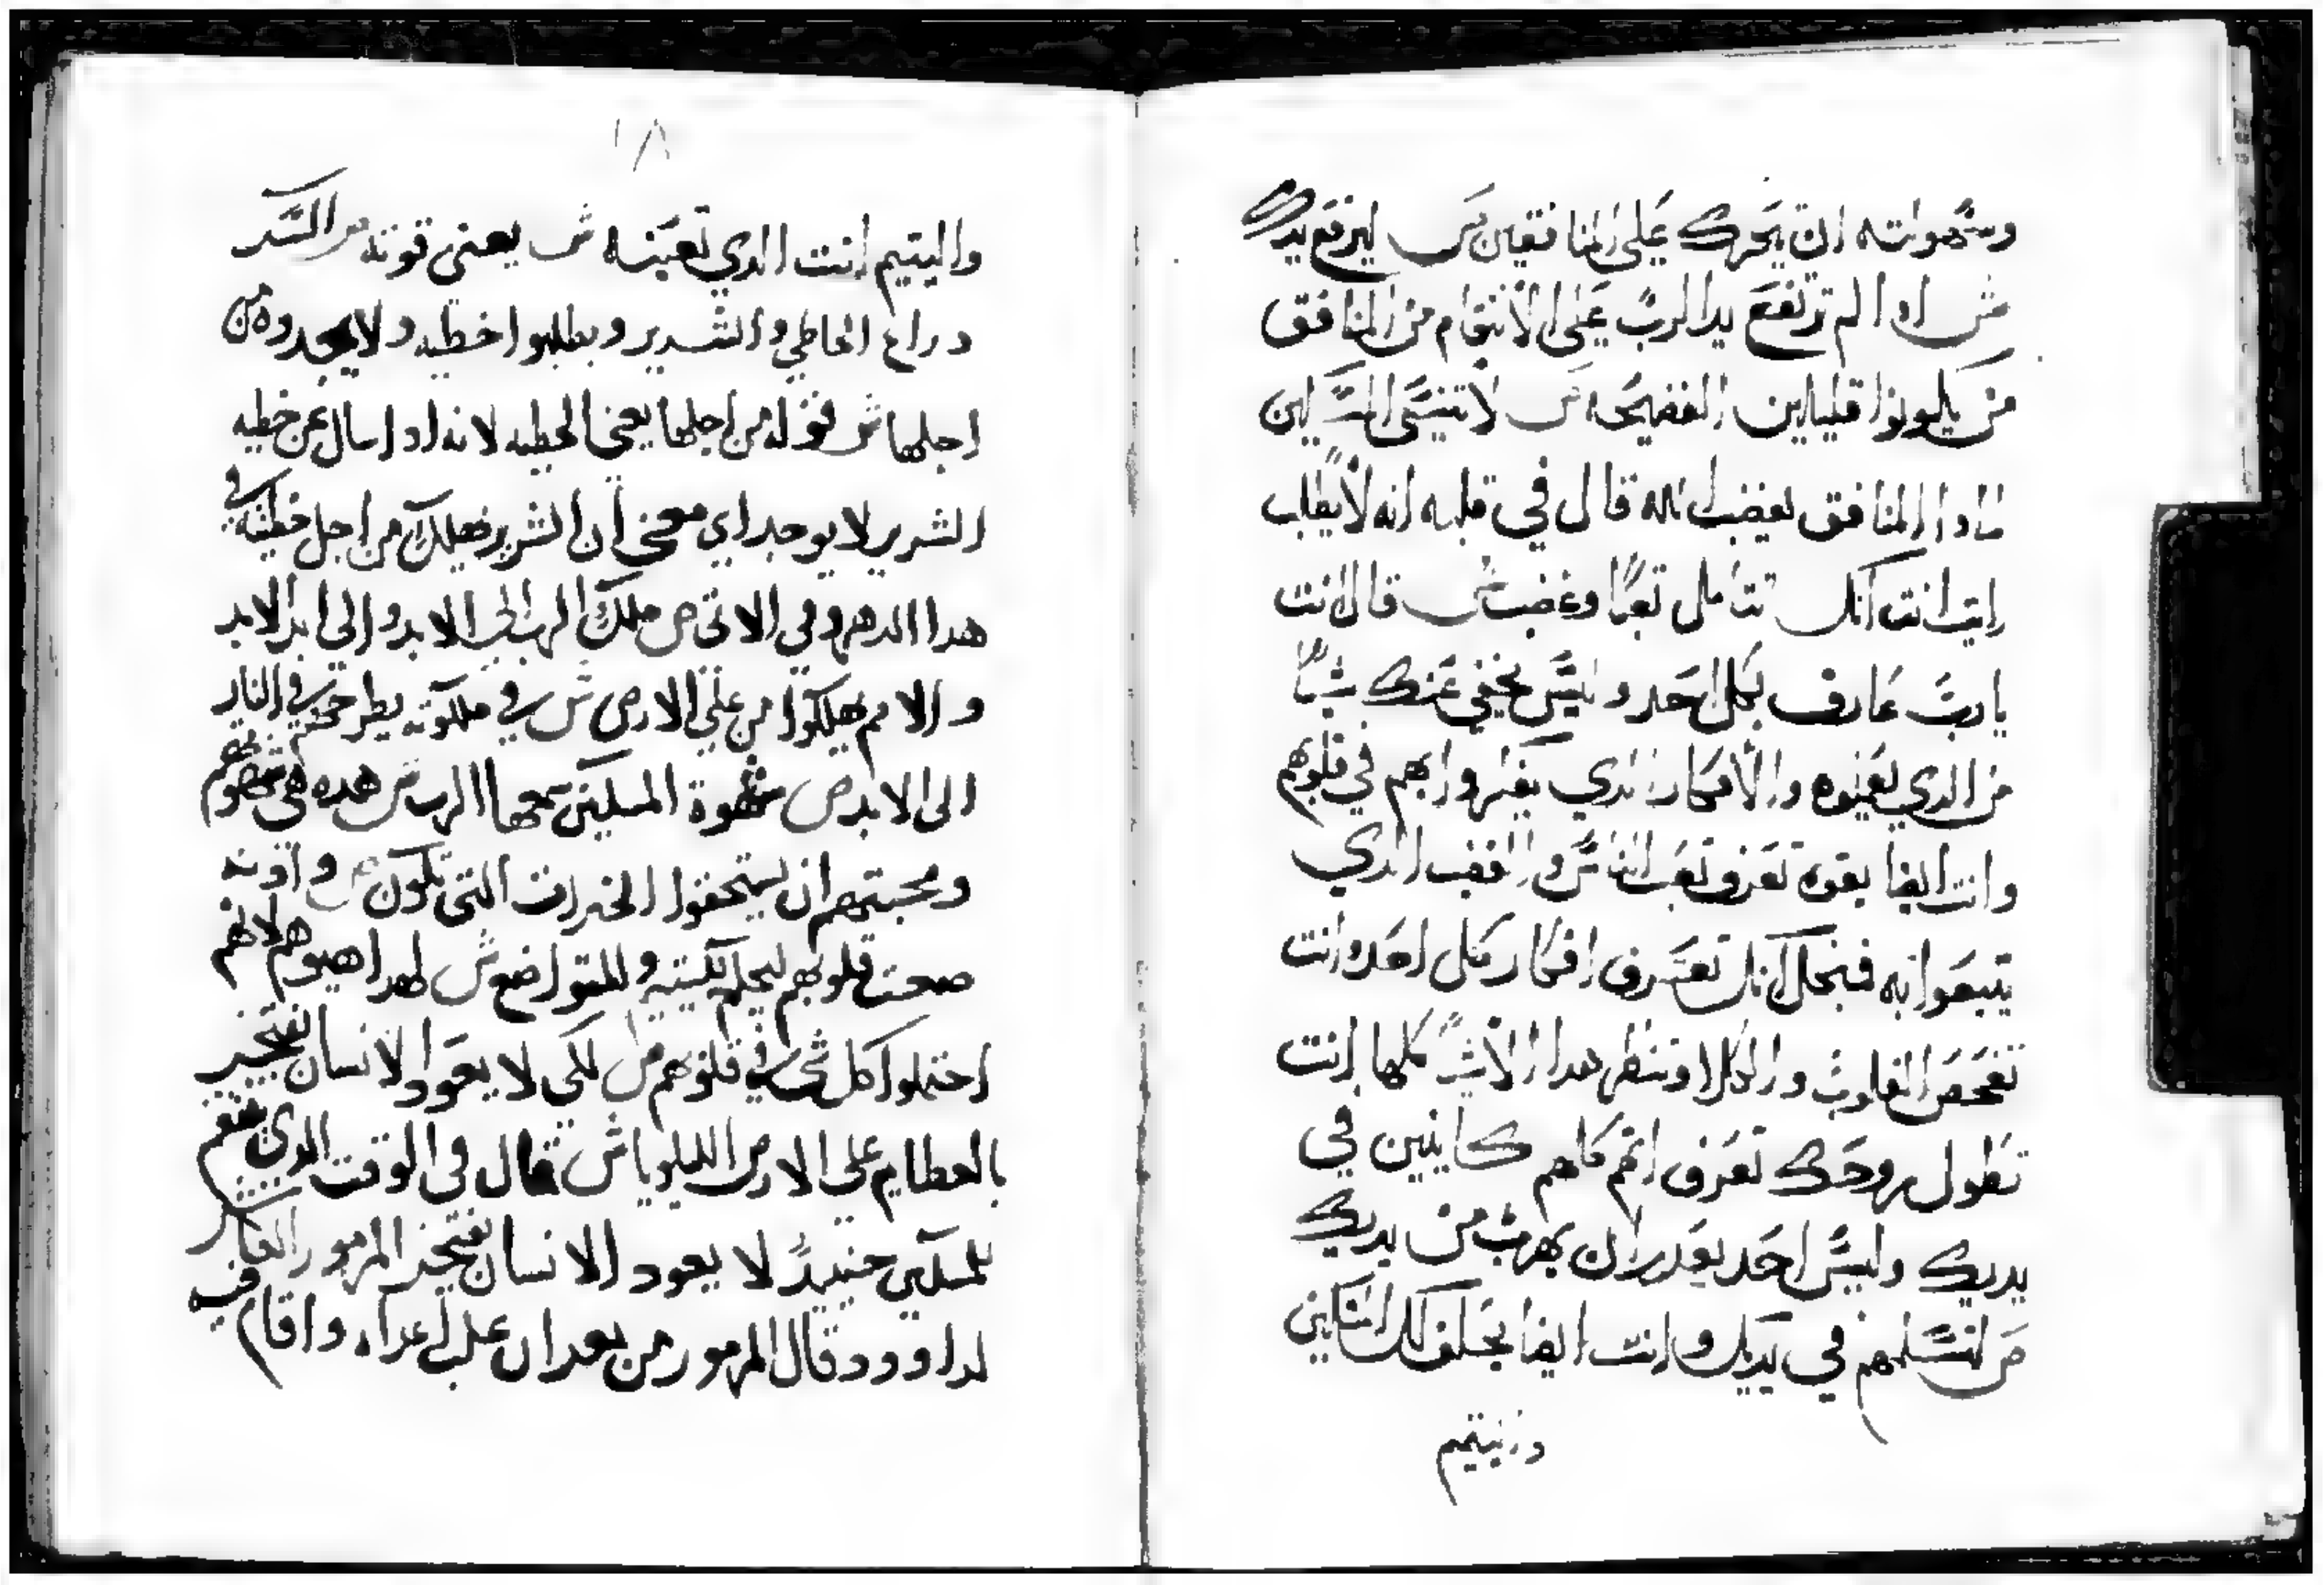 وشهواته ان يحرك على المنافقين ص ليرفع يدك
ش اذا لم ترتفع يد الرب على الانتقام من المنافق
من يكونوا قليلين الفضيحه ص لا تنسى المساكين
لمادا المنافق يغضب الله قال في قلبه انه لا يطلب
رايت انت انك تتامل تعبا وغضب ش قال انت
يارب عارف بكل احد وليس يخفي عنك شيا
من الدي يعينوه والافكار الدي يفتكروا بهم في قلوبهم
وانت ايضا بقوه تعرف تعب الناس والغضب الدي
يتبعوا به فنجعل انك تعرف افكار كل احد وانت
تفحص القلوب والكلا وتنظر هدا الاشيا كلها انت
تطول روحك تعرف انهم كلهم كاينين في
يديك وليس احد يقدر ان يهرب من يديك
ص لتسلمهم في يديك وانت ايضا يخلف لك المساكين
واليتيم
١٨
واليتيم انت الدي تعينه ش يعنى قوته ص اكسر
دراع الخاطي والشرير ويطلبوا خطيه ولا يجدوه من
اجلها ش قوله من اجلها يعنى الخطيه لانه ادا سال عن خطيه
الشرير لا يوجد اي معنى ان الشرير فيهلك من اجل خطيته في
هدا الدهر وفي الاتى ص ملك الرب الى الابد والى ابد الابد
والامم يهلكوا من على الارض ش في ملكوته يطرحهم في النار
الى الابد ص شهوة المسكين سمعها الرب ش هده هى شهوتهم
ومحبتهم ان يستحقوا الخيرات التى تكون ص وادنه
صحت قلوبهم ليحكم لليتيم وللمتواضع ش لهدا هيوهم لانهم
احتملوا كل شى في قلوبهم ص لكى لا يعود الانسان يفتخر
بالعظايم على الارض الليلويا ش قال في الوقت الدي ينتقم
للمسكين حينيدً لا يعود الانسان يفتخر المزمور العاشر
لداوود قال المزمور من بعد ان غلب اعداه واقام في